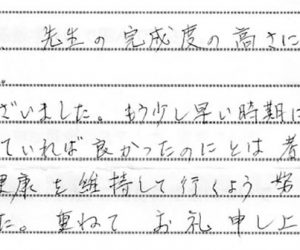 先生の完成度の高さに
ざいました。もう少し早い時期に
ていれば良かったのにとは考
康を維持して行くよう努
た。重ねてお礼申し上